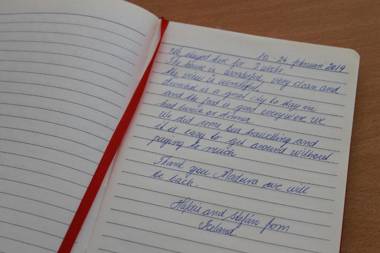 10 - 24 februar 2019
We stayed here for 2 weeks.
The house is wonderful, very clean and
the view is wonderful.
Funchal is a great city to stay in
and the food is good everywhere we
had lunch or dinner.
We did some bus travelling and
it is easy to get around without
paying to much.
Thank you Madeira we will
be back.
and Stefán from
Iceland